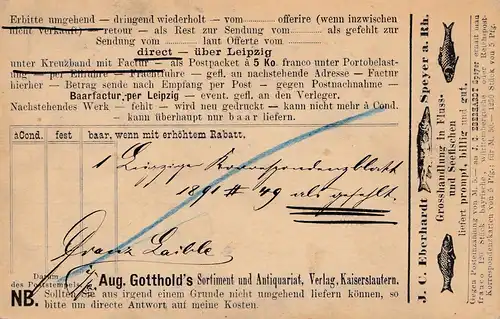 Erbitte umgehend – dringend wiederholt – vom............ offerire (wenn inzwischen
nicht verkauft) – retour – als Rest zur Sendung vom............ als gefehlt zur
Sendung vom............ laut Offerte vom............
direct – über Leipzig
unter Kreuzband mit Factur – als Postpacket à 5 Ko. franco unter Portobelast-
ung – per Eilfuhre – Frachtfuhre – gefl. an nachstehende Adresse – Factur
hierher – Betrag sende nach Empfang per Post – gegen Postnachnahme
Baarfactur per Leipzig – event. gefl. an den Verleger.
Nachstehendes Werk – fehlt – wird neu gedruckt – kann nicht mehr à Cond.
kann überhaupt nur baar liefern.
à Cond. fest baar, wenn mit erhöhtem Rabatt.
1 Leipziger Korrespondenzblatt
1891 # 49 als gefehlt.
Franz Laible
Datum
des Poststempels.
Aug. Gotthold's Sortiment und Antiquariat, Verlag, Kaiserslautern.
NB. Sollten Sie aus irgend einem Grunde nicht umgehend liefern können, so
bitte um direct Antwort auf meine Kosten.
J. C. Eberhardt Speyer a. Rh.
Grosshandlung in Fluss-
und Seefischen
liefert prompt, billig u. gut.